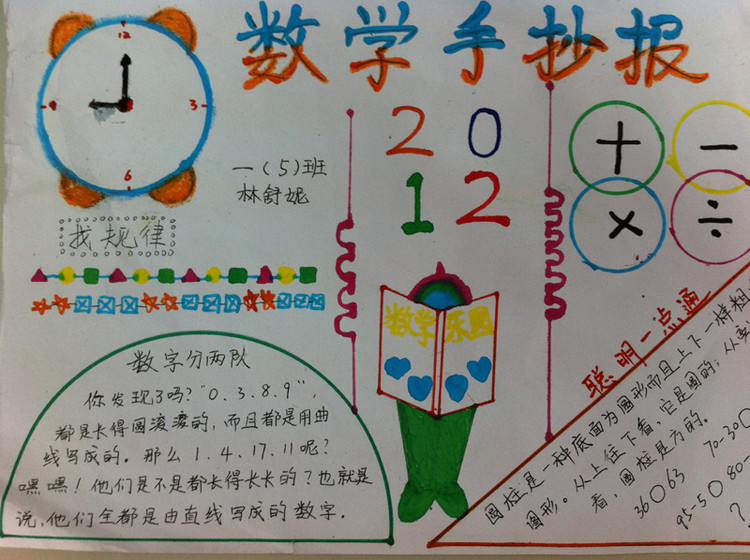 数学手抄报
12
9 3
6
2 0
1 2
+ −
× ÷
一(5)班
林舒妮
找规律
数学乐园
数字分两队
你发现了吗?"0.3.8.9",
都是长得圆滚滚的,而且都是用曲
线写成的。那么1.4.17.11呢?
嘿嘿!他们是不是都长得长长的?也就是
说,他们全都是由直线写成的数字.
聪明一点通
圆柱是一种底面为圆形而且上下一样粗
图形。从上往下看,它是圆的;从
看,圆柱是方的。
36○63 70-30○
95-5○80-
?